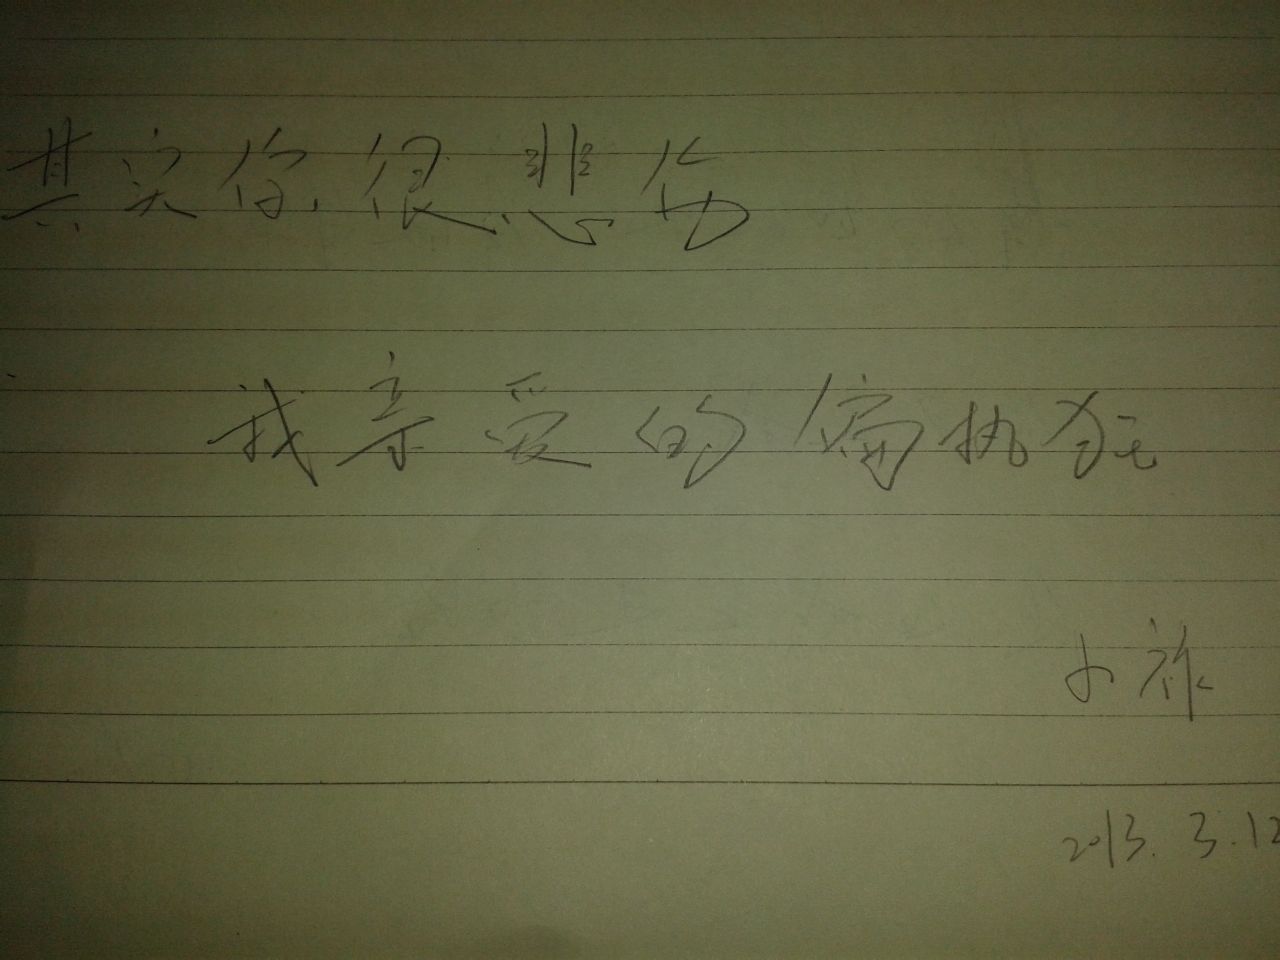 其实你很悲伤
我亲爱的偏执狂
小祚
2013.3.12